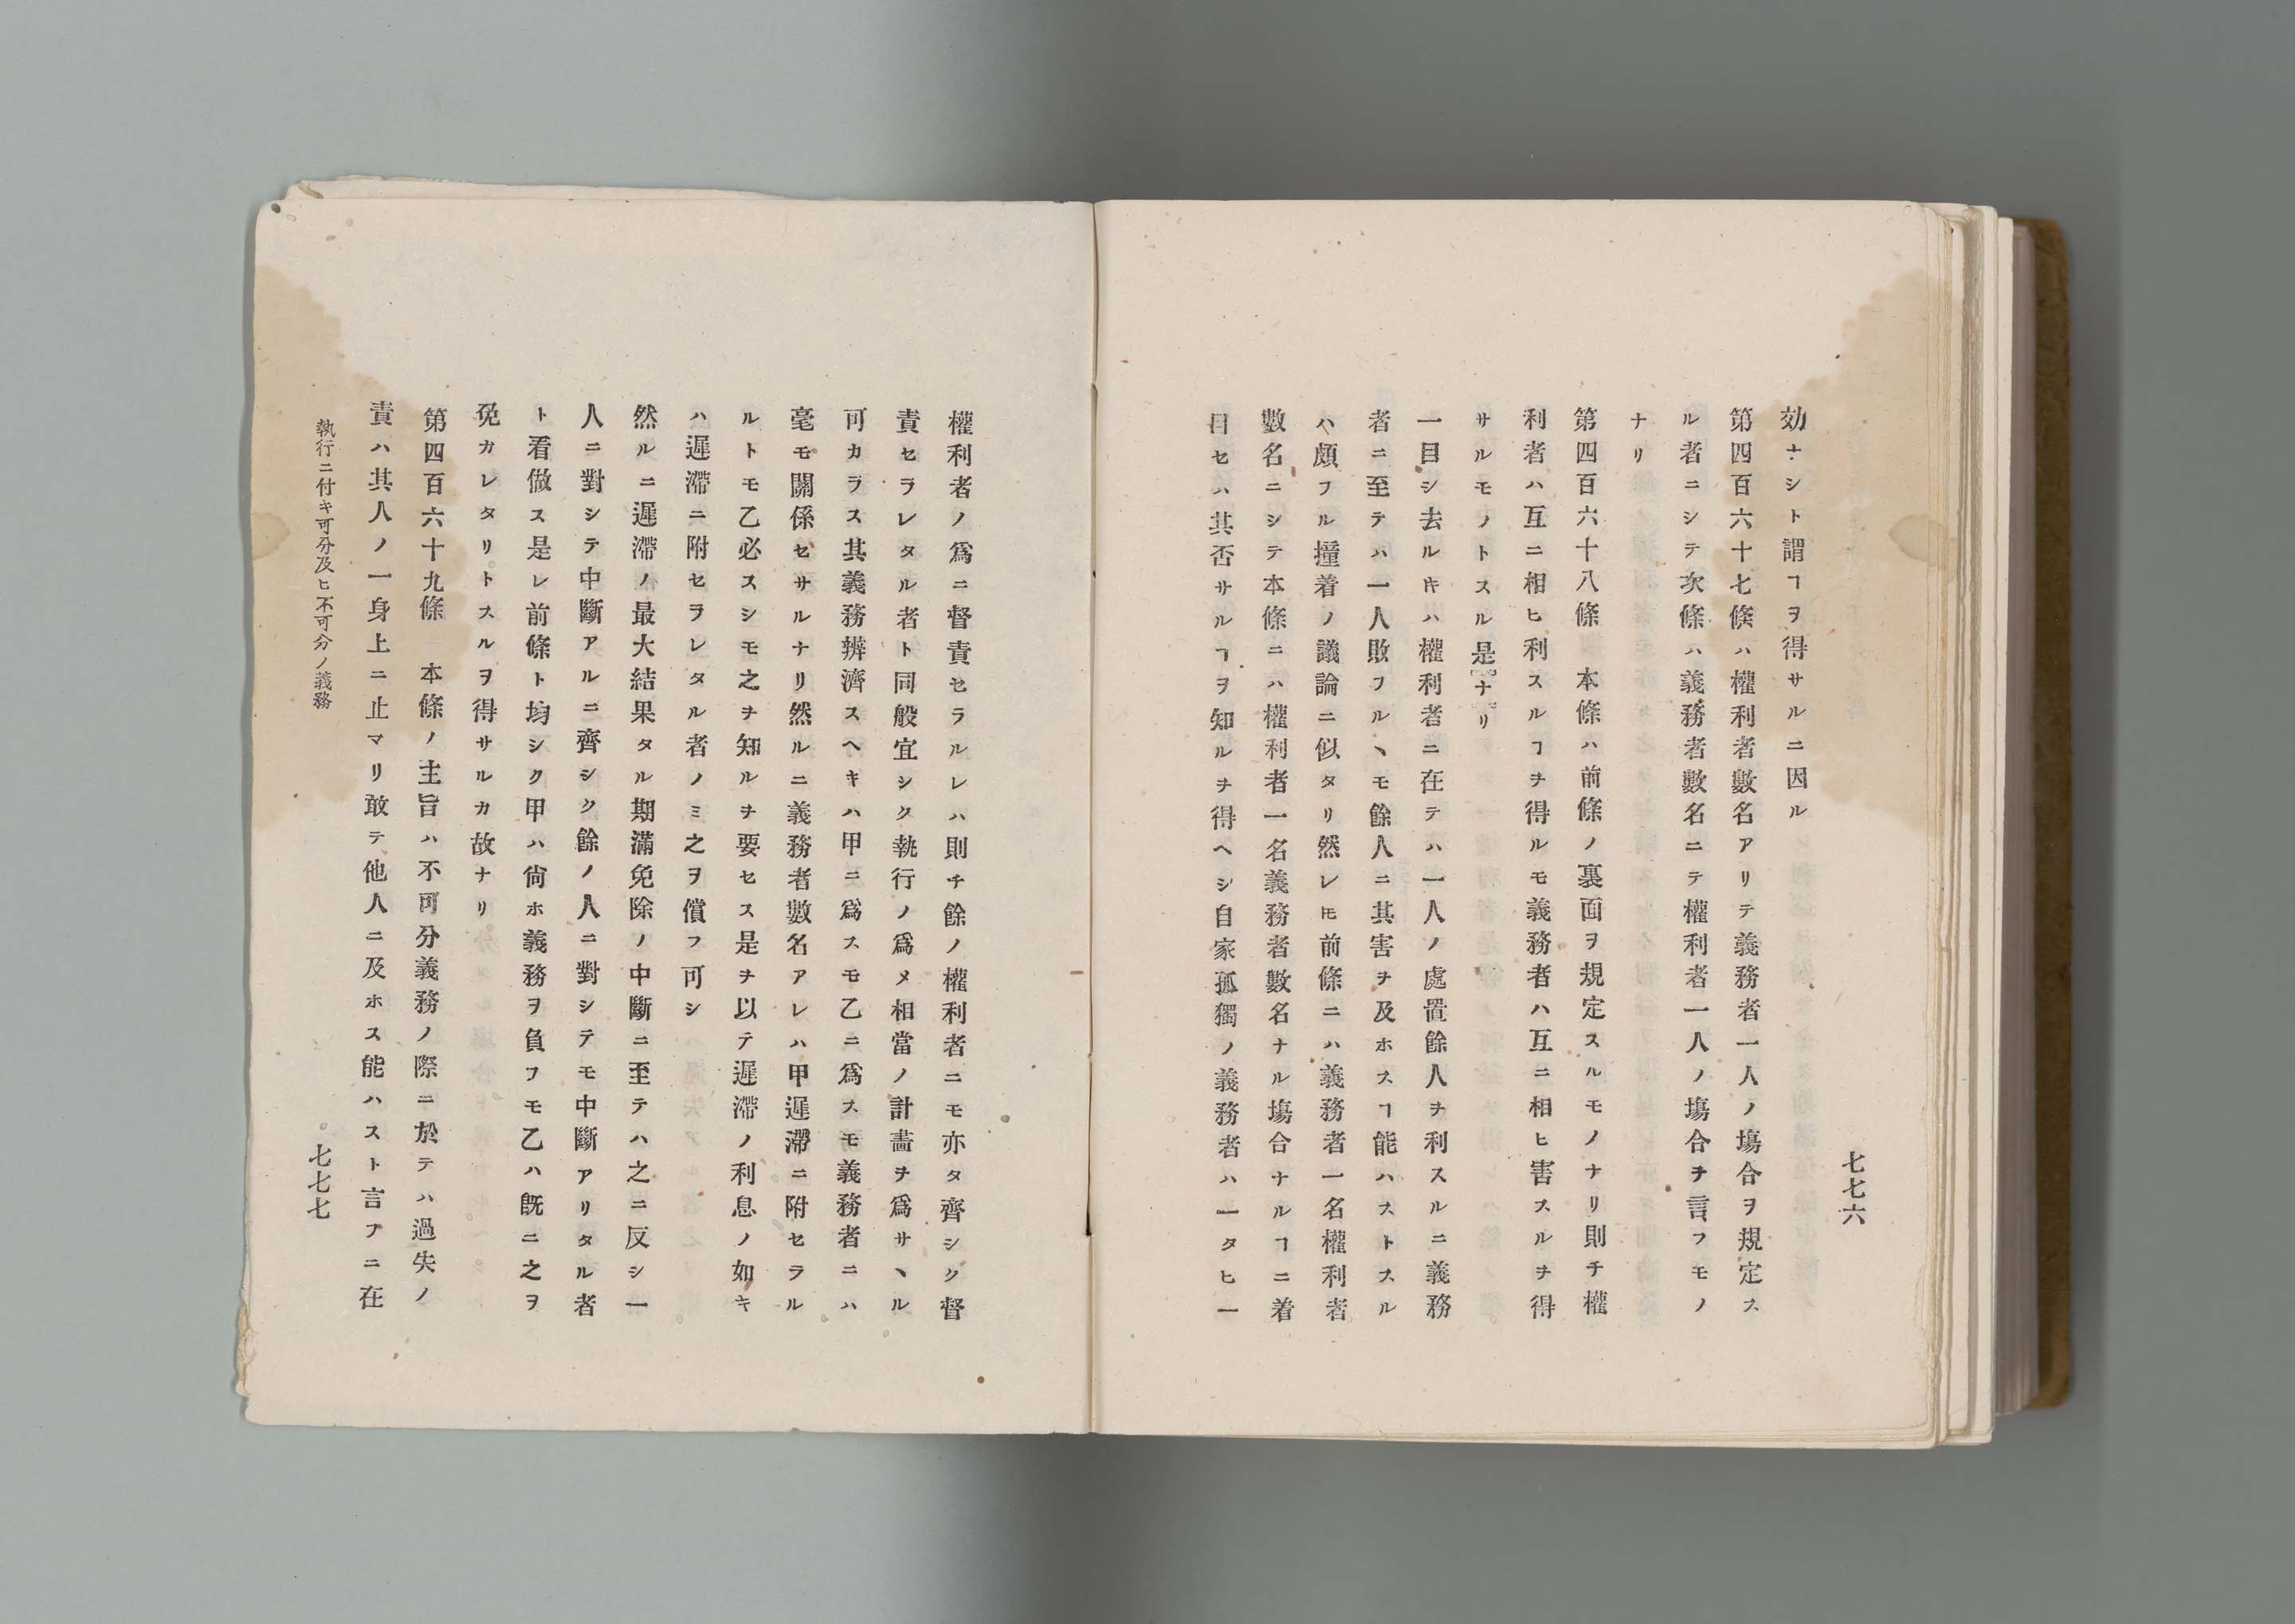 七七六
効ナシト謂ヿヲ得サルニ因ル
第四百六十七條ハ權利者數名アリテ義務者一人ノ塲合ヲ規定ス
ル者ニシテ次條ハ義務者數名ニテ權利者一人ノ塲合ヲ言フモノ
ナリ
第四百六十八條　本條ハ前條ノ裏面ヲ規定スルモノナリ則チ權
利者ハ互ニ相ヒ利スルヿヲ得ルモ義務者ハ互ニ相ヒ害スルヲ得
サルモノトスル是ナリ
一目シ去ルキハ權利者ニ在テハ一人ノ處置餘人ヲ利スルニ義務
者ニ至テハ一人敗フルヽモ餘人ニ其害ヲ及ホスヿ能ハストスル
ハ頗フル撞着ノ議論ニ似タリ然レ𪜈前條ニハ義務者一名權利者
數名ニシテ本條ニハ權利者一名義務者數名ナル塲合ナルヿニ着
目セハ其否サルヿヲ知ルヲ得ヘシ自家孤獨ノ義務者ハ一タヒ一
權利者ノ爲ニ督責セラルレハ則チ餘ノ權利者ニモ亦タ齊シク督
責セラレタル者ト同般宜シク執行ノ爲メ相當ノ計畵ヲ爲サヽル
可カラス其義務辨濟スヘキハ甲ニ爲スモ乙ニ爲スモ義務者ニハ
毫モ關係セサルナリ然ルニ義務者數名アレハ甲遲滯ニ附セラル
ルトモ乙必スシモ之ヲ知ルヲ要セス是ヲ以テ遲滯ノ利息ノ如キ
ハ遲滯ニ附セラレタル者ノミ之ヲ償フ可シ
然ルニ遲滯ノ最大結果タル期滿免除ノ中斷ニ至テハ之ニ反シ一
人ニ對シテ中斷アルニ齊シク餘ノ人ニ對シテモ中斷アリタル者
ト看做ス是レ前條ト均シク甲ハ尙ホ義務ヲ負フモ乙ハ既ニ之ヲ
免カレタリトスルヲ得サルカ故ナリ
第四百六十九條　本條ノ主旨ハ不可分義務ノ際ニ於テハ過失ノ
責ハ其人ノ一身上ニ止マリ敢テ他人ニ及ホス能ハスト言フニ在
執行ニ付キ可分及ヒ不可分ノ義務
七七七